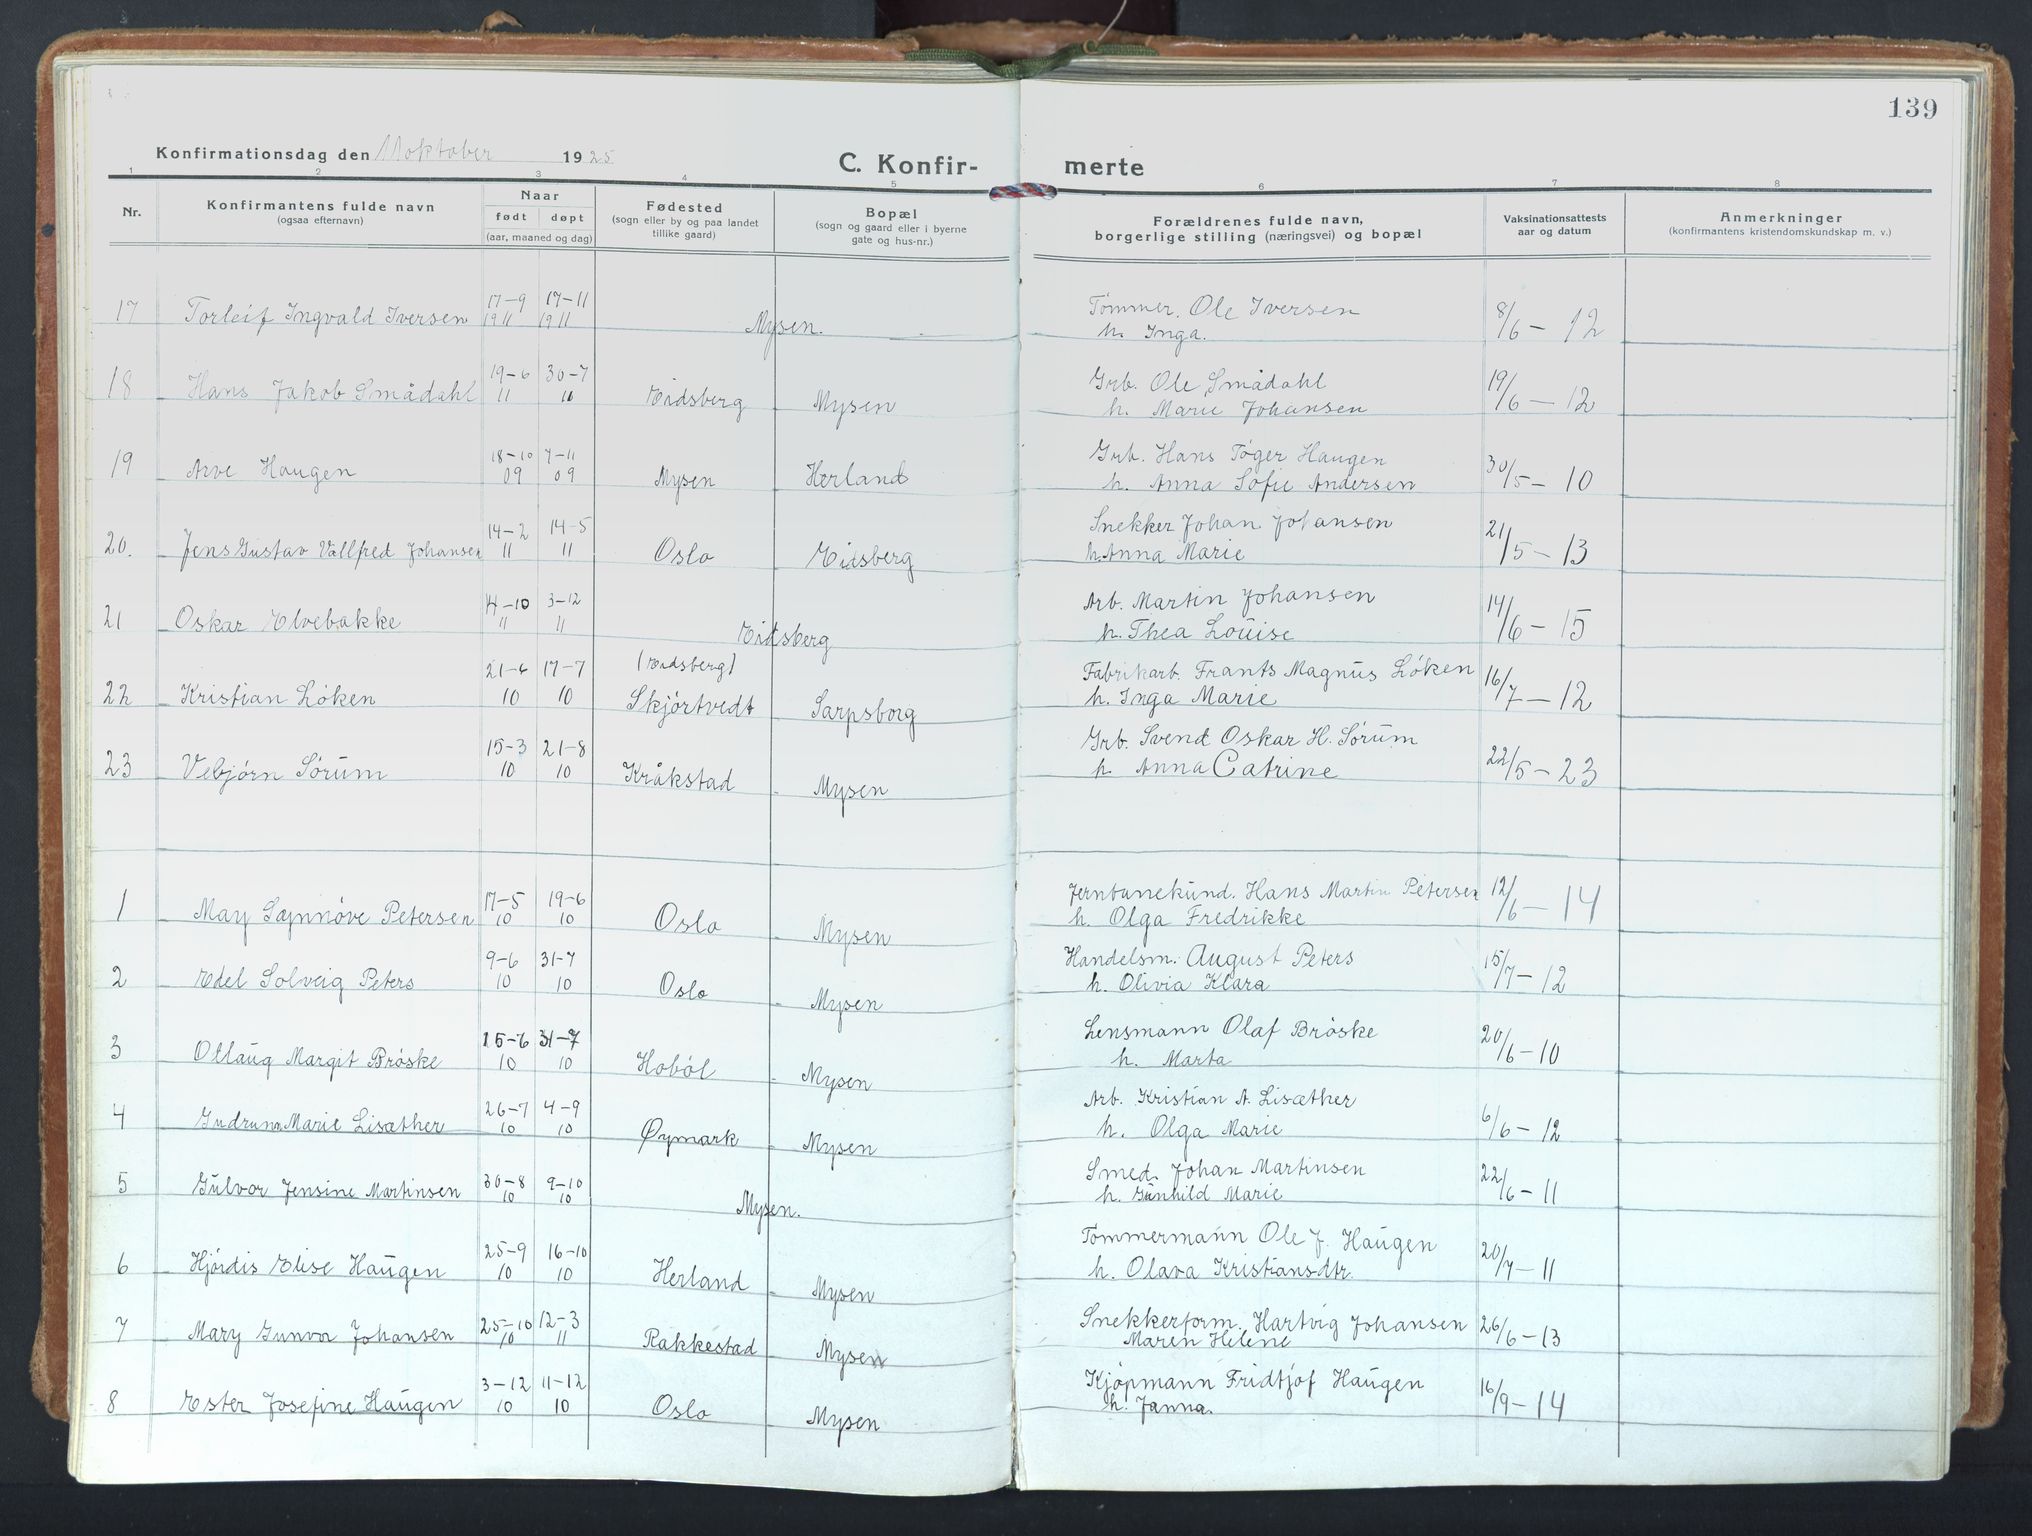 139
Konfirmationsdag den 11 oktober 1925
C. Konfir- merte
1 2 3 4 5 6 7 8
Nr.
Konfirmantens fulde navn
(ogsaa efternavn)
Naar
født døpt
(aar, maaned og dag)
Fødested
(sogn eller by og paa landet
tillike gaard)
Bopæl
(sogn og gaard eller i byerne
gate og hus-nr.)
Forældrenes fulde navn,
borgerlige stilling (næringsvei) og bopæl
Vaksinationsattests
aar og datum
Anmerkninger
(konfirmantens kristendomskundskap m. v.)
17 Torleif Ingvald Iversen 17-9 1911 17-11 1911 Mysen. Tömmer. Ole Iversen h. Inga. 8/6-12
18 Hans Jakob Smådahl 19-6 11 30-7 11 Eidsberg Mysen Grb. Ole Smådahl h. Marie Johansen 19/6-12
19 Arve Haugen 18-10 09 7-11 09 Mysen Herland Grb. Hans Töger Haugen h. Anna Sofie Andersen 30/5-10
20. Jens Gustav Vallfred Johansen 14-2 11 14-5 11 Oslo Eidsberg Snekker Johan Johansen h. Anna Marie 21/5-13
21 Oskar Elvebakke 14-10 11 3-12 11 Eidsberg Arb. Martin Johansen h. Thea Louise 14/6-15
22 Kristian Löken 21-6 10 17-7 10 (Eidsberg) Skjörtvedt Sarpsborg Fabrikarb. Frants Magnus Löken h. Inga Marie 16/7-12
23 Vebjörn Sörum 15-3 10 21-8 10 Kråkstad Mysen Grb. Svend Oskar H. Sörum h. Anna Catrine 22/5-23
1 May Synnöve Petersen 17-5 10 19-6 10 Oslo Mysen Jernbanekund. Hans Martin Petersen h. Olga Fredrikke 12/6-14
2 Edel Solveig Peters 9-6 10 31-7 10 Oslo Mysen Handelsm. August Peters h. Olivia Klara 15/7-12
3 Ollaug Margit Bröske 15-6 10 31-7 10 Hoböl Mysen Lensmann Olaf Bröske h. Marta 20/6-10
4 Gudrun Marie Lisæther 26-7 10 4-9 10 Øymark Mysen Arb. Kristian A. Lisæther h. Olga Marie 6/6-12
5 Gulvor Jensine Martinsen 30-8 10 9-10 10 Mysen. Smed. Johan Martinsen h. Gunhild Marie 22/6-11
6 Hjördis Elise Haugen 25-9 10 16-10 10 Herland Mysen Tömmermann Ole J. Haugen h. Olava Kristiansdtr. 20/7-11
7 Mary Gunvor Johansen 25-10 10 12-3 11 Rakkestad Mysen Snekkerform. Hartvig Johansen Maren Helene 26/6-13
8 Ester Josefine Haugen 3-12 10 11-12 10 Oslo Mysen Kjöpmann Fridtjof Haugen h. Janna. 16/9-14